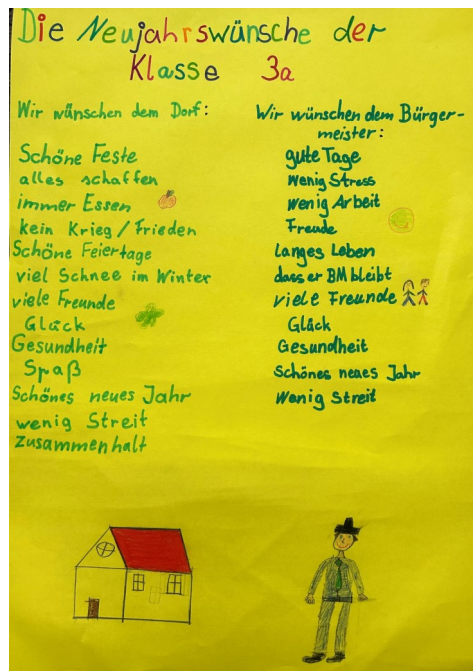 Die Neujahrswünsche der
Klasse 3a
Wir wünschen dem Dorf:
Schöne Feste
alles schaffen
immer Essen
kein Krieg / Frieden
Schöne Feiertage
viel Schnee im Winter
viele Freunde
Glück
Gesundheit
Spaß
Schönes neues Jahr
wenig Streit
zusammenhalt
Wir wünschen dem Bürger-
meister:
gute Tage
wenig Stress
wenig Arbeit
Freude
langes Leben
dass er BM bleibt
viele Freunde
Glück
Gesundheit
Schönes neues Jahr
wenig Streit